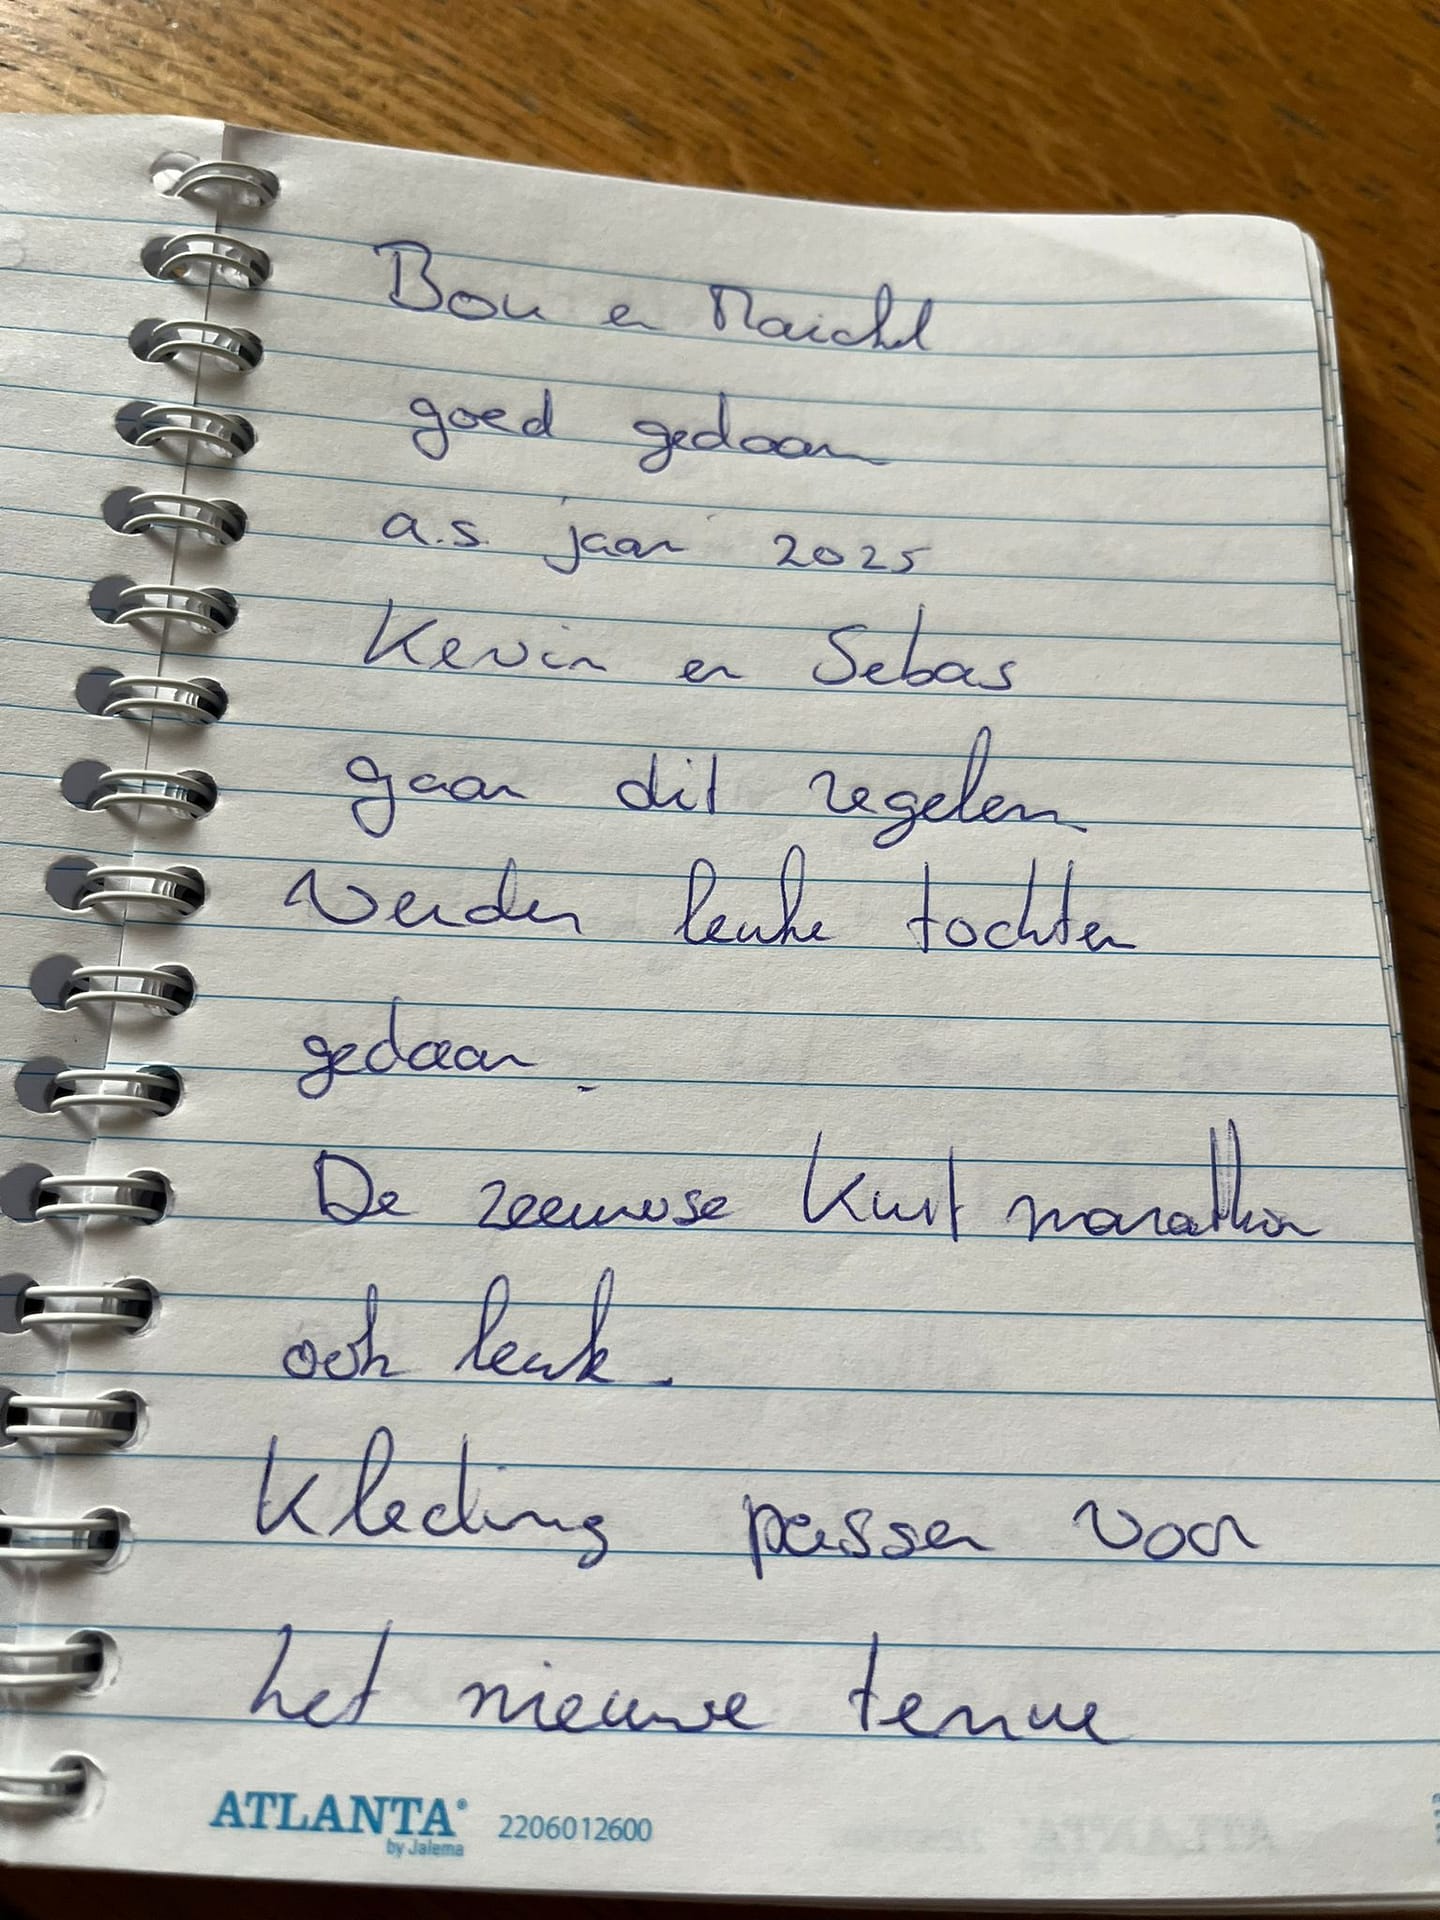 Bou en Maichel
goed gedaan
a.s. jaar 2025
Kevin en Sebas
gaan dit regelen
Werden leuke tochten
gedaan.
De zeeuwse Kust marathon
ook leuk.
Kleding passen voor
het nieuwe tenue
ATLANTA®
by Jalema
2206012600